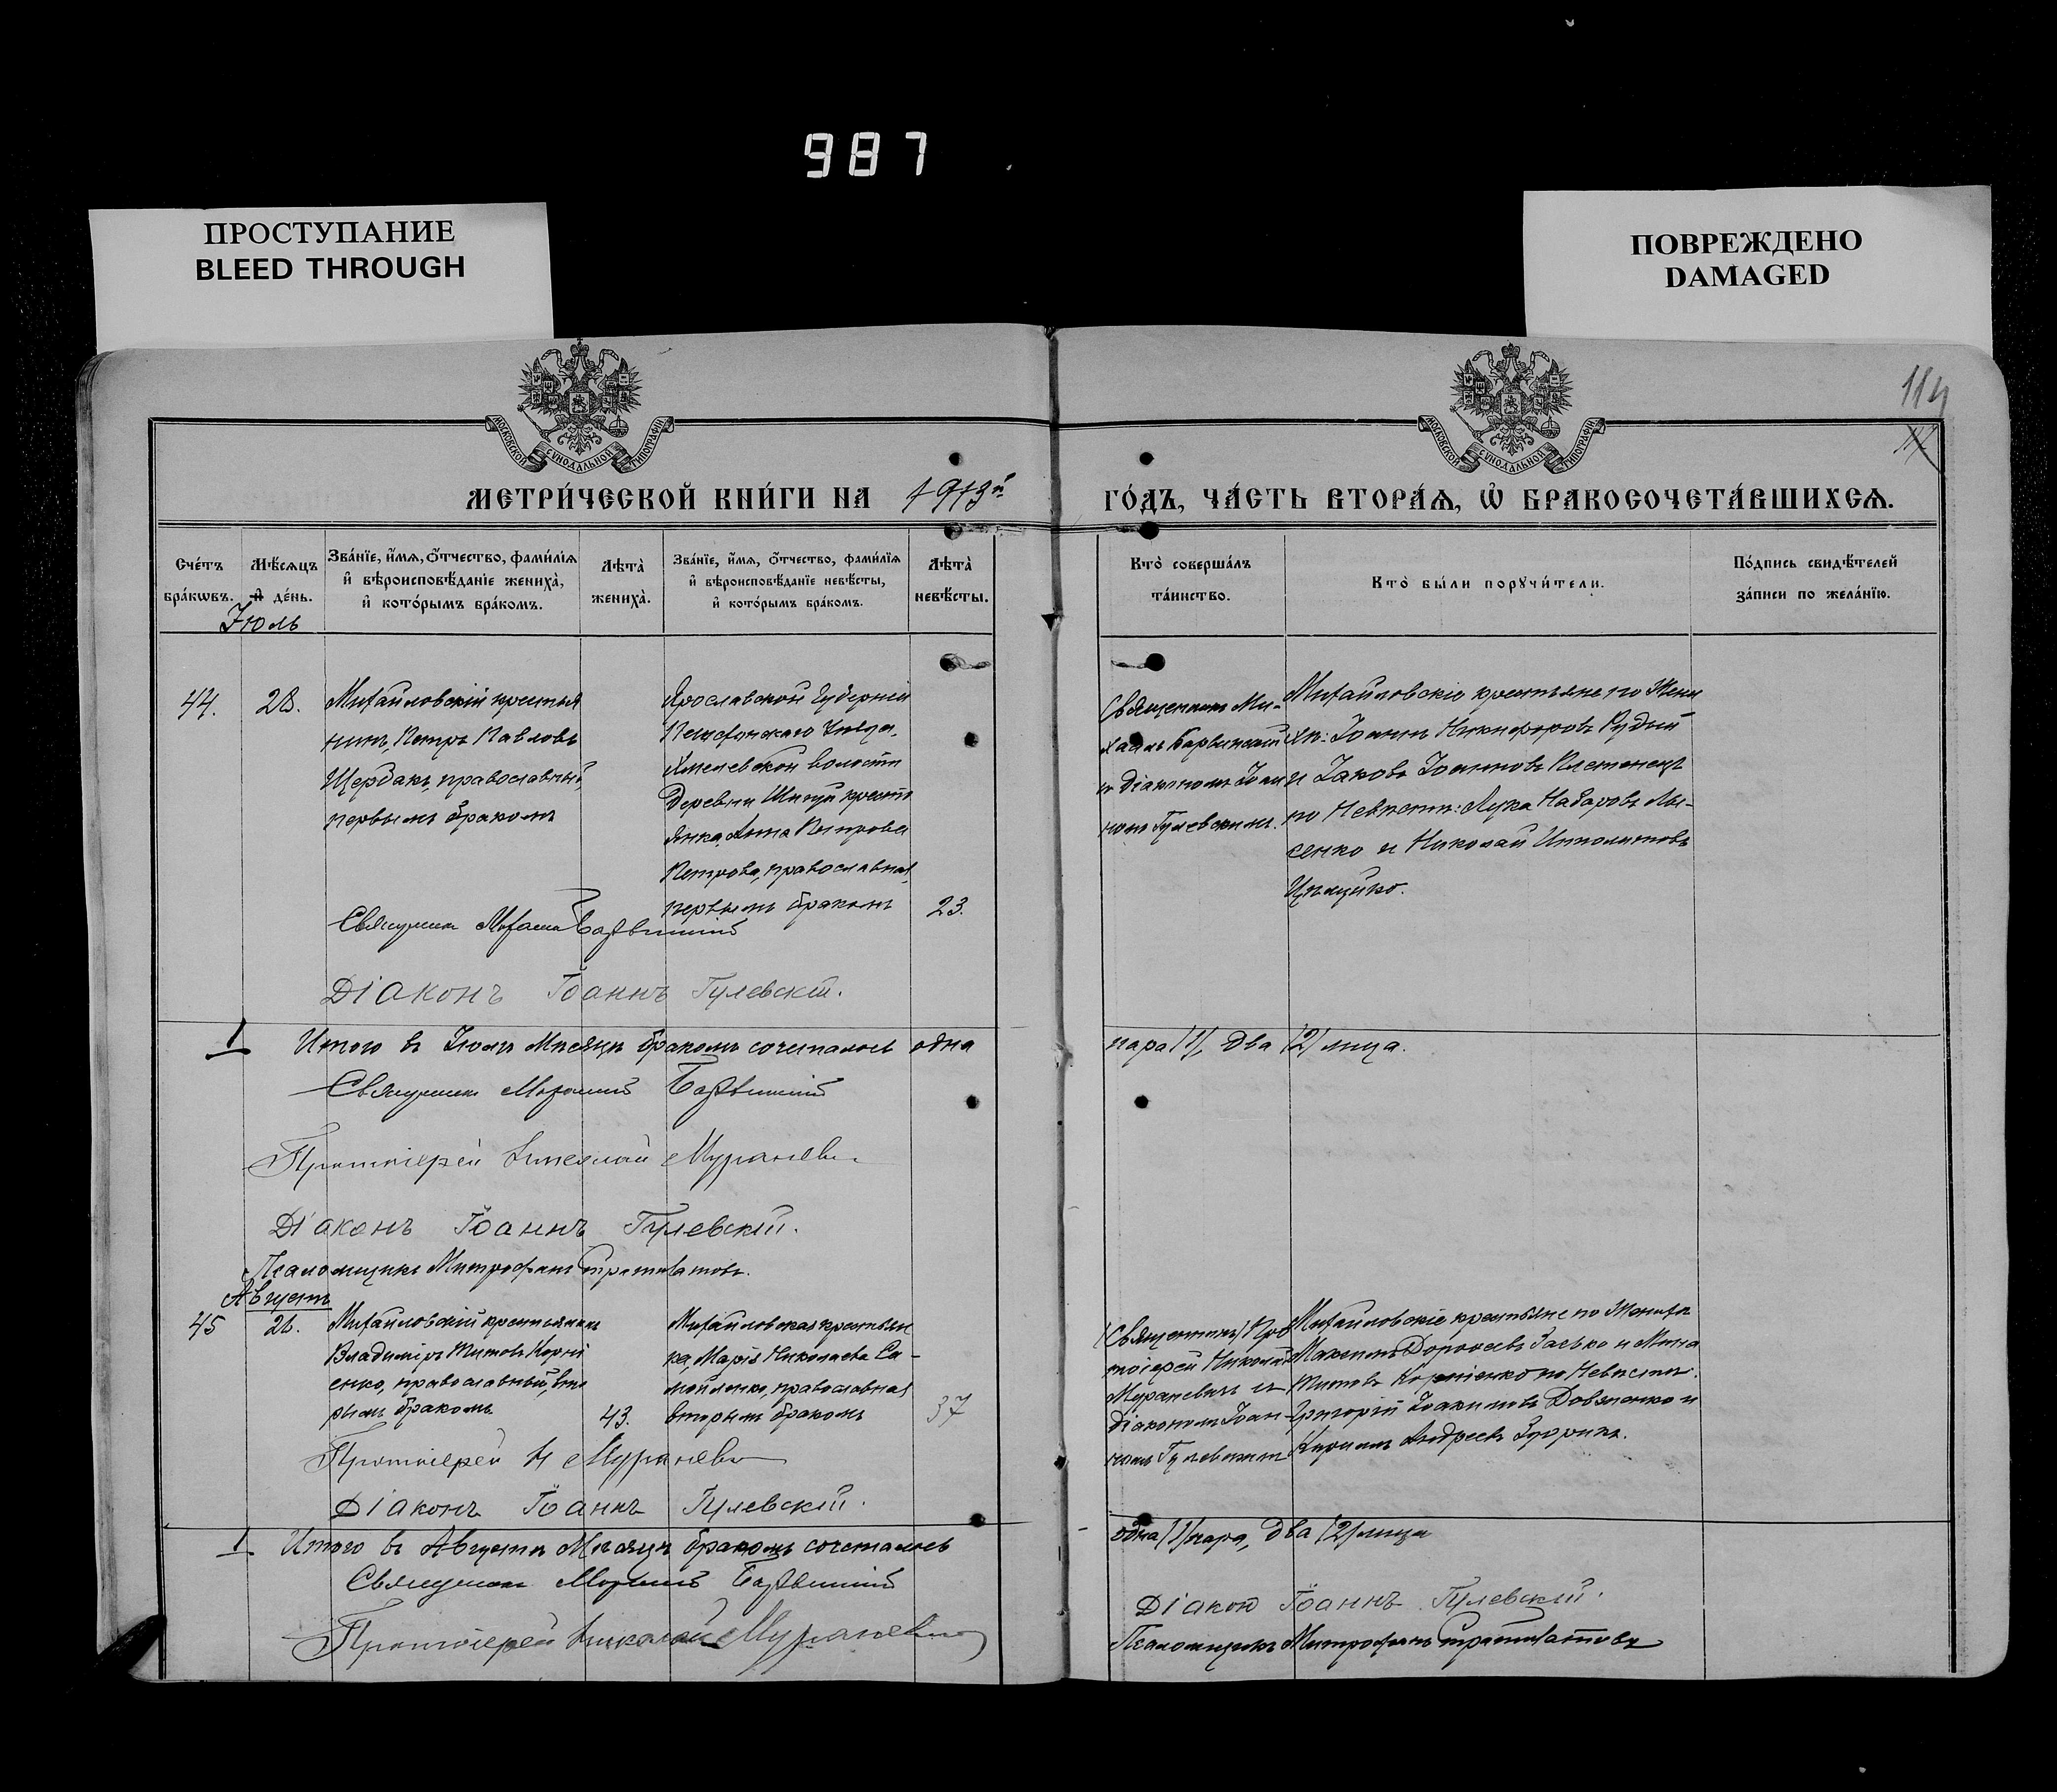 987
ПРОСТУПАНИЕ
BLEED THROUGH
ПОВРЕЖДЕНО
DAMAGED
114
МОСКОВСКОЙ СУНОДАЛЬНОЙ ТИПОГРАФІИ
МОСКОВСКОЙ СУНОДАЛЬНОЙ ТИПОГРАФІИ
МЕТРИ́ЧЕСКОЙ КНИ́ГИ НА 1913й
ГО́ДЪ, ЧА́СТЬ ВТОРА́Ѧ, Ѡ БРАКОСОЧЕТА́ВШИХСѦ.
Сче́тъ
бра́кѡвъ.
Мѣ́сѧцъ
и де́нь.
Іюль
Зва́нїе, и́мѧ, о́тчество, фами́лїѧ
и҆ вѣроисповѣ́данїе жениха̀,
и҆ кото́рымъ бра́комъ.
Лѣта̀
жениха̀.
Зва́нїе, и́мѧ, о́тчество, фами́лїѧ
и҆ вѣроисповѣ́данїе невѣ́сты,
и҆ кото́рымъ бра́комъ.
Лѣта̀
невѣ́сты.
Кто̀ соверша́лъ
та́инство.
Кто̀ бы́ли порꙋчи́тели.
По́дпись свидѣ́телей
за́писи по жела́нїю.
44.
28.
Михайловскій крестья
нинъ, Петръ Павловъ
Щербакъ, православный,
первымъ бракомъ
Ярославской Губерніи
Уѣзда,
волости
Деревни крестья
янка, Анна Петрова
Петрова, православная,
первымъ бракомъ
23.
Священникъ Ми-
хаилъ Барвинскій
и діакономъ Іоан
номъ Гулевскимъ.
Михайловскіе крестьяне по Жени
хѣ: Іоаннъ Никифоровъ Рудый
и Іаковъ Іоанновъ Плетенецъ
по Невѣстѣ: Лука Назаровъ Лы-
сенко и Николай Ипполитовъ
Священникъ Михаилъ Барвинскій
Діаконъ Іоаннъ Гулевскій.
1 Итого въ Іюлѣ Мѣсяцѣ бракомъ сочеталось одна
пара /1/, два /2/ лица.
Священникъ Михаилъ Барвинскій
Протоіерей Николай Мураневичъ
Діаконъ Іоаннъ Гулевскій.
Псаломщикъ Митрофанъ
Августъ
45
28.
Михайловскій крестьянинъ
Владиміръ Титовъ Корні
енко, православный, вто
рымъ бракомъ.
43.
Михайловская крестьян
ка, Марія Николаева Са-
мойленко, православная
вторымъ бракомъ
37
Священникъ Про
тоіерей Николай
Мураневичъ и
діакономъ Іоан-
номъ Гулевскимъ
Михайловскіе крестьяне по Женихѣ
Максимъ Дороѳеевъ Заѣько и Мина
Титовъ Корніенко по Невѣстѣ.
Григорій Іоакимовъ Довженко и
Кириллъ Андреевъ
Протоіерей Н Мураневичъ
Діаконъ Іоаннъ Гулевскій.
1. Итого въ Августѣ Мѣсяцѣ бракомъ сочеталось
одна /1/ пара, два /2/ лица
Священникъ Михаилъ Барвинскій
Діакон Іоаннъ Гулевскій.
Протоіерей Николай Мураневичъ
Псаломщикъ Митрофанъ